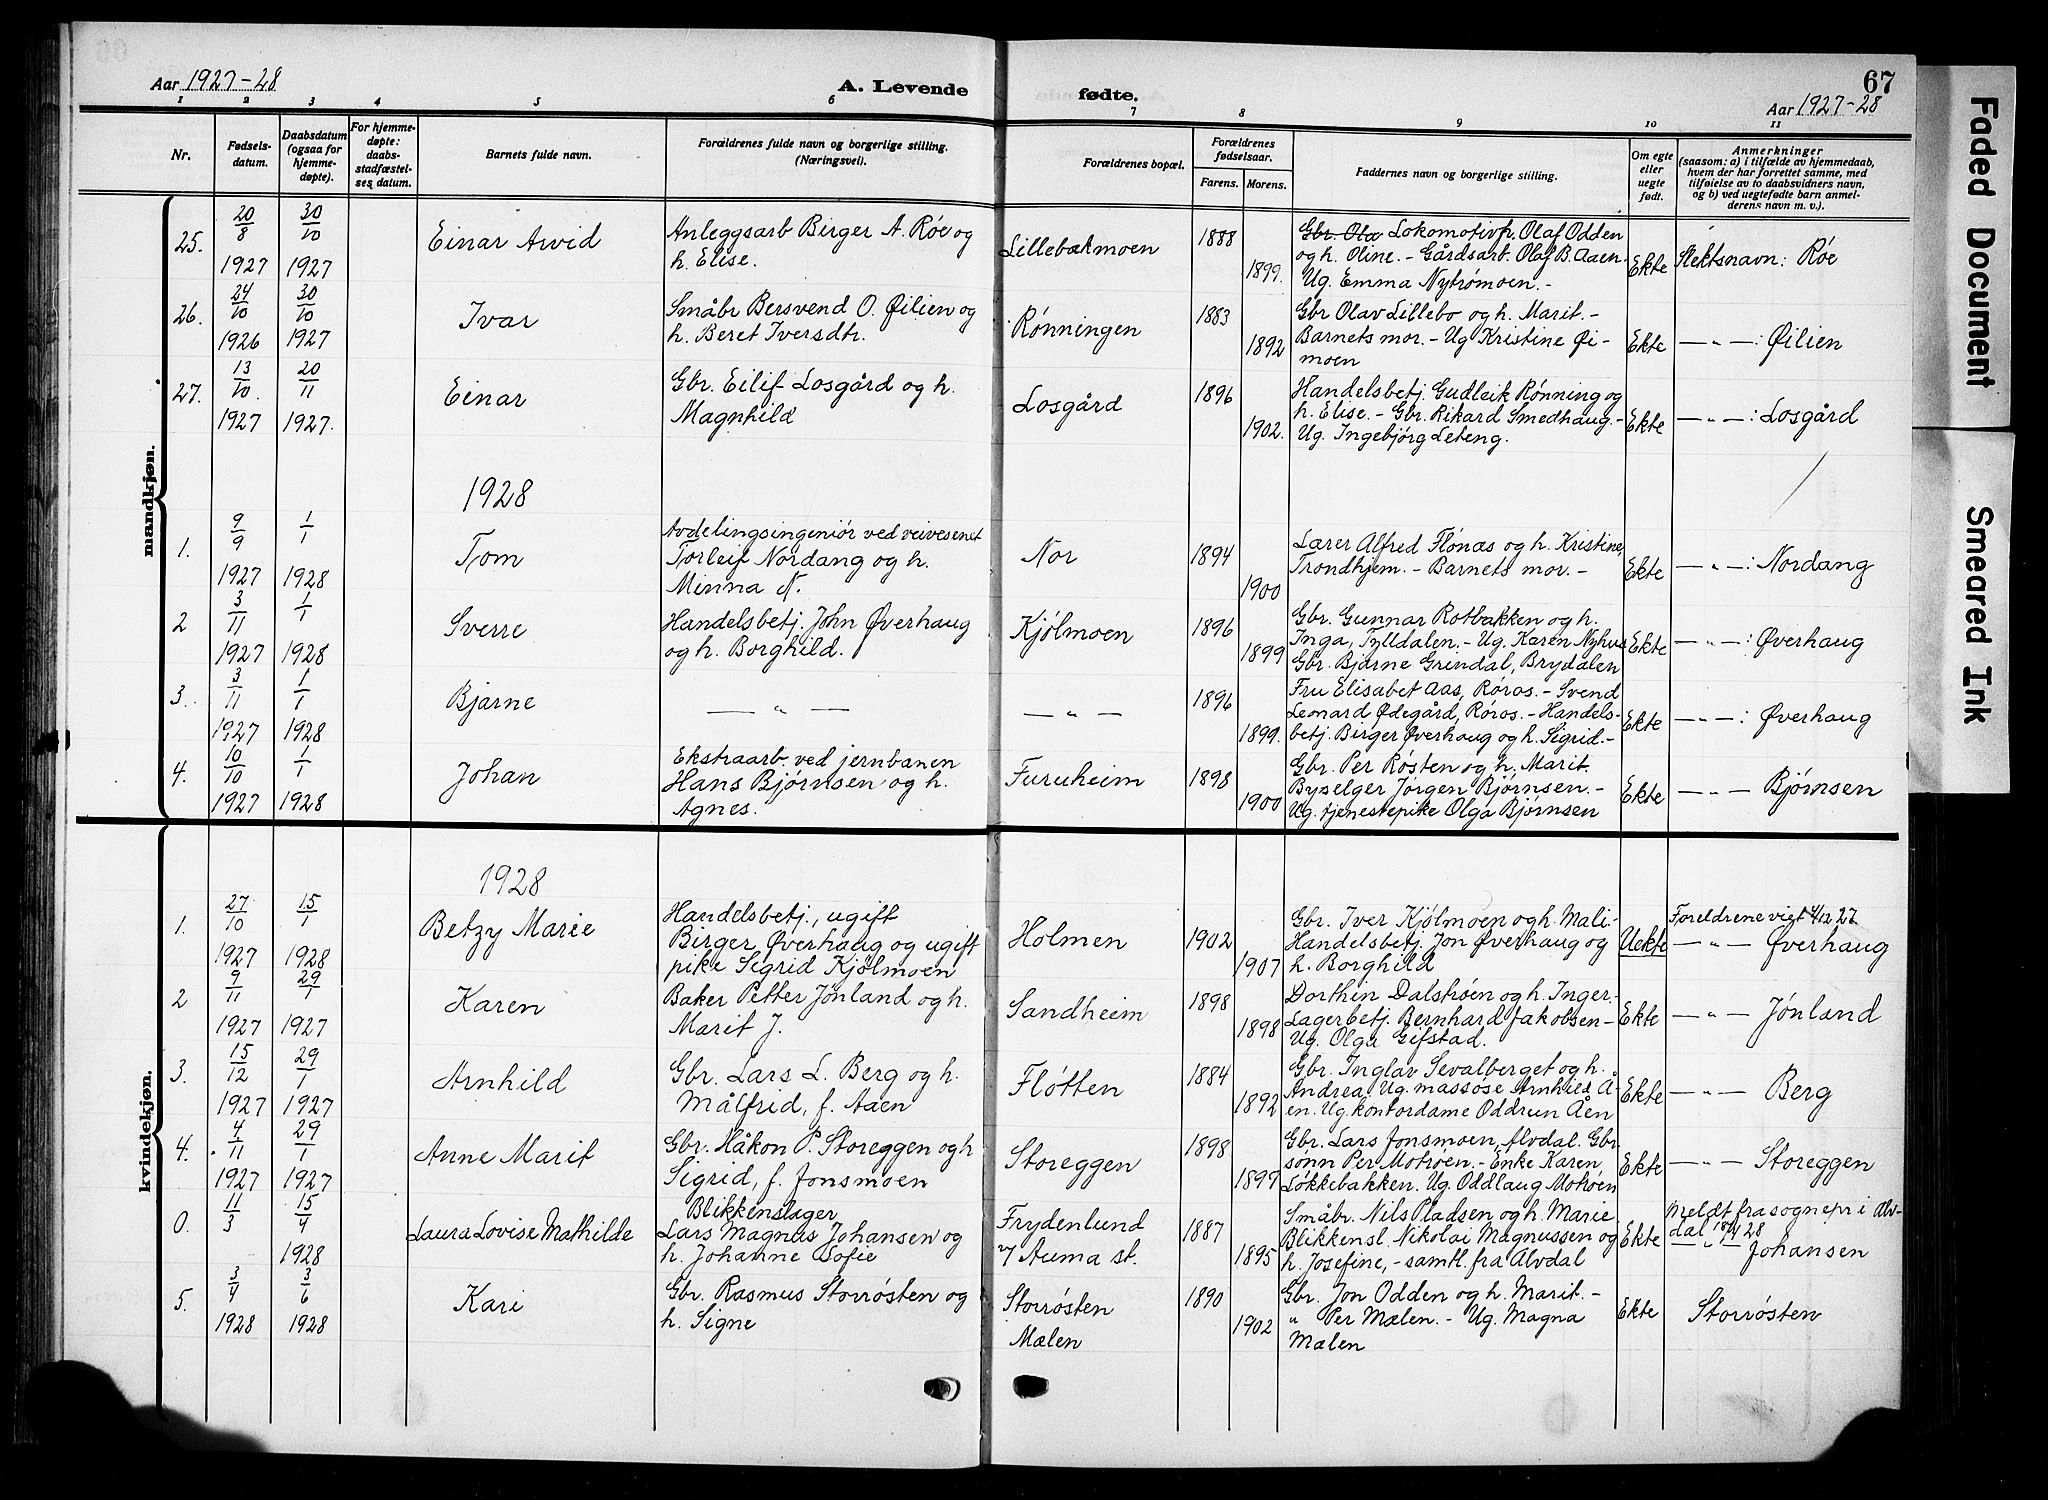 Aar 1927-28
A. Levende fødte.
67
Aar 1927-28
1 2 3 4 5 6 7 8 9 10 11
Nr.
Fødsels-
datum.
Daabsdatum
(ogsaa for
hjemme-
døpte).
For hjemme-
døpte:
daabs-
stadfæstel-
ses datum.
Barnets fulde navn.
Forældrenes fulde navn og borgerlige stilling.
(Næringsvei).
Forældrenes bopæl.
Forældrenes
fødselsaar.
Farens. Morens.
Faddernes navn og borgerlige stilling.
Om egte
eller
uegte
født.
Anmerkninger
(saasom: a) i tilfælde av hjemmedaab,
hvem der har forrettet samme, med
tilføielse av to daabsvidners navn,
og b) ved uegtefødte barn anmel-
derens navn m. v.).
mandkjøn.
25.
20/8
1927
30/10
1927
Einar Arvid
Anleggsarb Birger A. Røe og
h. Elise.
Lillebækmoen
1888
1899.
Gbr. Ola Lokomotivfr. Olaf Odden
og h. Oline. - Gårdsarb. Olaf B. Aaen.
Ug. Emma Nytrømoen. -
Ekte
Slektsnavn: Røe
26.
24/10
1926
30/10
1927
Ivar
Småbr Bersvend O. Øilien og
h. Beret Iversdtr.
Rønningen
1883
1892
Gbr Olav Lillebo og h. Marit. -
Barnets mor. - Ug Kristine Øi-
moen
Ekte
— " — : Øilien
27.
13/10.
1927
20/11
1927.
Einar
Gbr. Eilif Losgård og h.
Magnhild
Losgård
1896
1902.
Handelsbetj. Gudleik Rønning og
h. Elise. - Gbr. Rikard Smedhaug. -
Ug. Ingebjørg Leteng.
Ekte
— " — : Losgård
1928
1.
9/9
1927
1/1
1928
Tom
Avdelingsingeniør ved veivesenet
Torleif Nordang og h.
Minna N.
Nor
1894
1900
Lærer Alfred Flønæs og h. Kristine,
Trondhjem. - Barnets mor. -
Ekte
— " — : Nordang
2
3/11
1927
1/1
1928
Sverre
Handelsbetj. John Øverhaug
og h. Borghild.
Kjølmoen
1896
1899
Gbr. Gunnar Rotbakken og h.
Inga, Tylldalen. - Ug. Karen Nyhus
Gbr. Bjarne Grindal, Brydalen
Ekte
— " — : Øverhaug
3.
3/11
1927
1/1
1928
Bjarne
— " —
— " —
1896
1899.
Fru Elisabet Aas, Røros. - Svend
Leonard Ødegård, Røros. - Handels-
betj. Birger Øverhaug og h. Sigrid. -
Ekte
— " — : Øverhaug
4.
10/10
1927
1/1
1928
Johan
Ekstraarb. ved jernbanen
Hans Bjørnsen og h.
Agnes.
Furuheim
1898
1900
Gbr. Per Røsten og h. Marit.
Byselger Jørgen Bjørnsen. -
Ug. tjenestepike Olga Bjørnsen
Ekte
— " — Bjørnsen
kvindekjøn.
1928
1.
27/10
1927
15/1
1928
Betzy Marie
Handelsbetj., ugift
Birger Øverhaug og ugift
pike Sigrid Kjølmoen
Holmen
1902
1907
Gbr. Iver Kjølmoen og h. Mali -
Handelsbetj. Jon Øverhaug og
h. Borghild
Uekte
Foreldrene viet 4/12 27
— " — Øverhaug
2
9/11
1927
29/1
1927
Karen
Baker Petter Jønland og h.
Marit J.
Sandheim
1898
1898
Dorthin Dalstrøen og h. Inger. -
Lagerbetj. Bernhard Jakobsen -
Ug. Olga Gifstad.
Ekte
— " — Jønland
3.
15/12
1927
29/1
1927
Arnhild
Gbr. Lars L. Berg og h.
Målfrid, f. Aaen
Fløtten
1884
1892
Gbr. Inglar Sevalberget og h.
Andrea. Ug. massøse Arnhild Å-
en. Ug. kontordame Oddrun Åen
Ekte
— " — Berg
4.
4/11
1927
29/1
1927
Anne Marit
Gbr. Håkon P. Storeggen og h
Sigrid, f. Jonsmoen
Storeggen
1898
1897
Gbr. Lars Jonsmoen, Alvdal. Gbr.
sønn Per Motrøen. - Enke Karen
Løkkebakken. Ug. Oddlaug Motrøen
Ekte
— " — Storeggen
0.
11/3
15/4
1928
Laura Lovise Mathilde
Blikkenslager
Lars Magnus Johansen og
h. Johanne Sofie
Frydenlund
v/ Auma st.
1887
1895
Småbr. Nils Pladsen og h. Marie
Blikkensl. Nikolai Magnussen og
h. Josefine, - samtl. fra Alvdal
Ekte
Meldt fra sognepr i Alv-
dal 18/4 28
— " — Johansen
5.
3/4
1928
3/6
1928
Kari
Gbr. Rasmus Storrøsten og
h. Signe
Storrøsten
Mælen
1890
1902
Gbr. Jon Odden og h. Marit. -
" Per Mælen. - Ug. Magna
Mælen
Ekte
Storrøsten
Faded Document
Smeared Ink